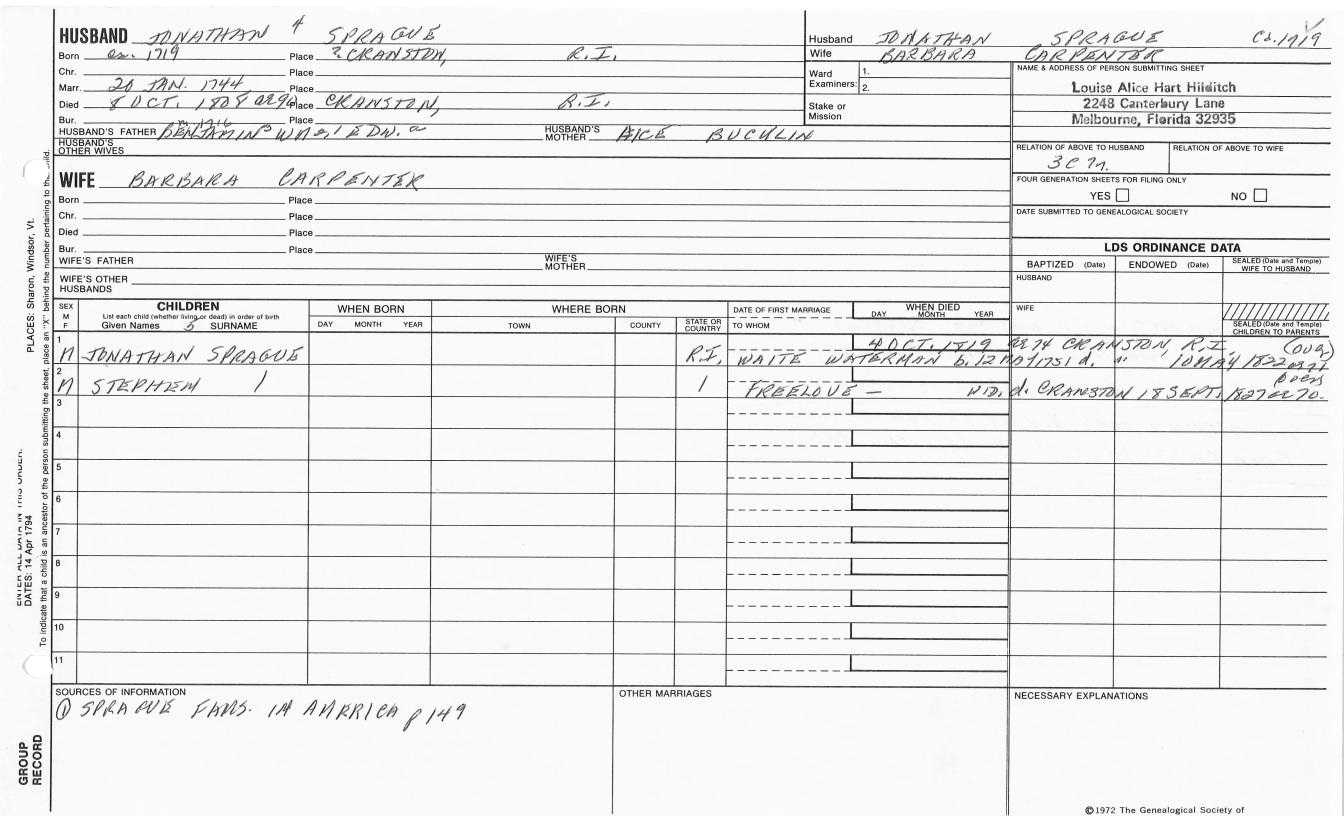 HUSBAND JONATHAN 4 SPRAGUE
Born ca. 1719 Place ? CRANSTON, R.I.
Chr. Place
Marr. 20 JAN. 1744 Place
Died 8 OCT. 1808 Place CRANSTON, R.I.
Bur. Place
HUSBAND'S FATHER BENJAMIN 3 HUSBAND'S MOTHER ALICE BUCKLIN
HUSBAND'S OTHER WIVES
WIFE BARBARA CARPENTER
Born Place
Chr. Place
Died Place
Bur. Place
WIFE'S FATHER WIFE'S MOTHER
WIFE'S OTHER HUSBANDS
Husband JONATHAN SPRAGUE Ca. 1719
Wife BARBARA CARPENTER
Ward Examiners: 1.
2.
Stake or Mission
NAME & ADDRESS OF PERSON SUBMITTING SHEET
Louise Alice Hart Hilditch
2248 Canterbury Lane
Melbourne, Florida 32935
RELATION OF ABOVE TO HUSBAND RELATION OF ABOVE TO WIFE
3C 7r.
FOUR GENERATION SHEETS FOR FILING ONLY
YES NO
DATE SUBMITTED TO GENEALOGICAL SOCIETY
LDS ORDINANCE DATA
BAPTIZED (Date) ENDOWED (Date) SEALED (Date and Temple) WIFE TO HUSBAND
HUSBAND
WIFE
SEALED (Date and Temple) CHILDREN TO PARENTS
SEX M F
CHILDREN
List each child (whether living or dead) in order of birth
Given Names 5 SURNAME
WHEN BORN
DAY MONTH YEAR
WHERE BORN
TOWN COUNTY STATE OR COUNTRY
DATE OF FIRST MARRIAGE
TO WHOM
WHEN DIED
DAY MONTH YEAR
1 4 OCT. 1819 ae 74 CRANSTON, R.I. (over)
M JONATHAN SPRAGUE R.I. WAITE WATERMAN b. 12 MAY 1751 d. " 10 MAY 1822 ae 71
2 over
M STEPHEN FREELOVE — WID. d. CRANSTON 18 SEPT. 1827 ae 70.
3
4
5
6
7
8
9
10
11
SOURCES OF INFORMATION
① SPRAGUE FAMS. IN AMERICA p 149
OTHER MARRIAGES
NECESSARY EXPLANATIONS
©1972 The Genealogical Society of
PLACES: Sharon, Windsor, Vt.
ENTER ALL DATA IN THIS ORDER:
DATES: 14 Apr 1794
To indicate that a child is an ancestor of the person submitting the sheet, place an "X" behind the number pertaining to the child.
GROUP RECORD